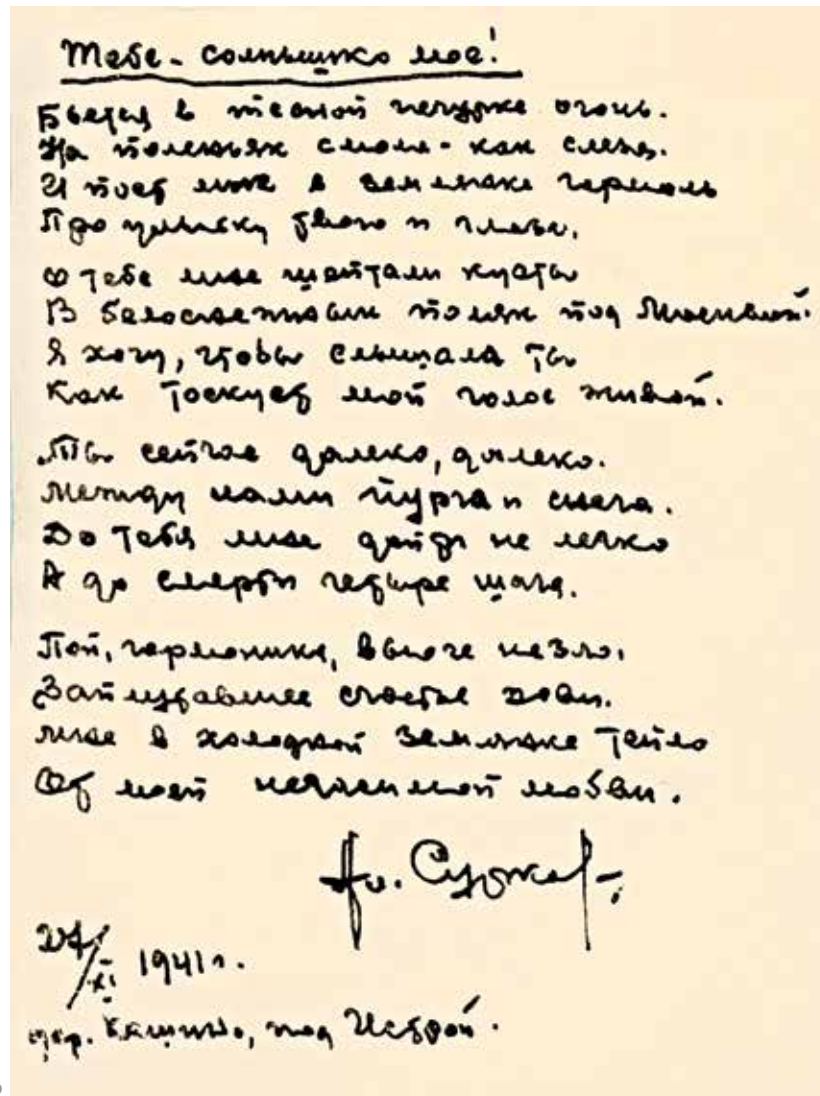 Тебе - солнышко мое!
Бьется в тесной печурке огонь.
На поленьях смола - как слеза.
И поет мне в землянке гармонь
Про улыбку твою и глаза.
О тебе мне шептали кусты
В белоснежных полях под Москвой.
Я хочу, чтобы слышала ты
Как тоскует мой голос живой.
Ты сейчас далеко, далеко.
Между нами пурга и снега.
До тебя мне дойти не легко
А до смерти четыре шага.
Пой, гармоника, вьюге назло.
Заплутавшее счастье зови.
Мне в холодной землянке тепло
От моей негасимой любви.
Ал. Сурков
27/XI 1941 г.
дер. Кашино, под Истрой.